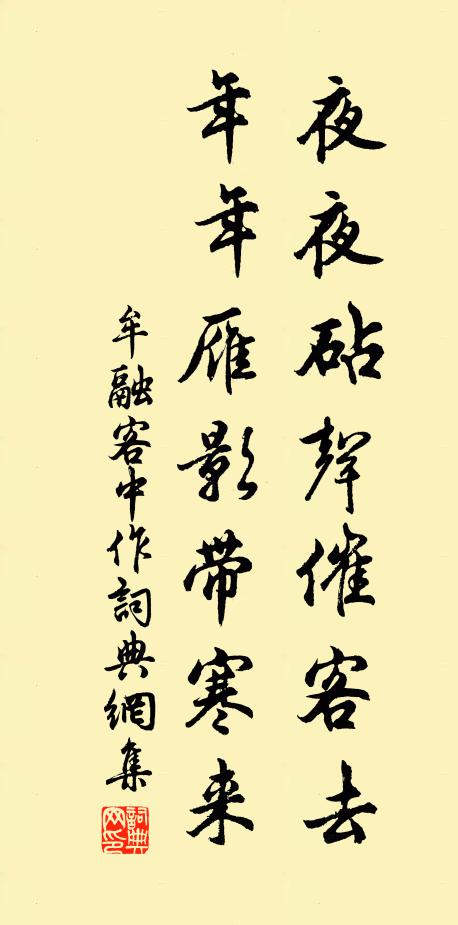 夜夜砧聲催客去
年年雁影帶寒来
牟融客中作詞典網集
詞典网印